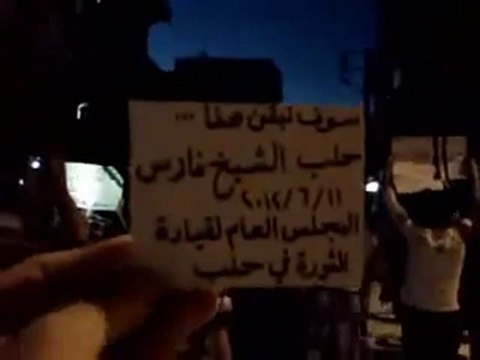 سوف نبقى هنا ...
حلب الشيخ فارس
٢٠١٢/٦/١١
المجلس العام لقيادة
الثورة في حلب